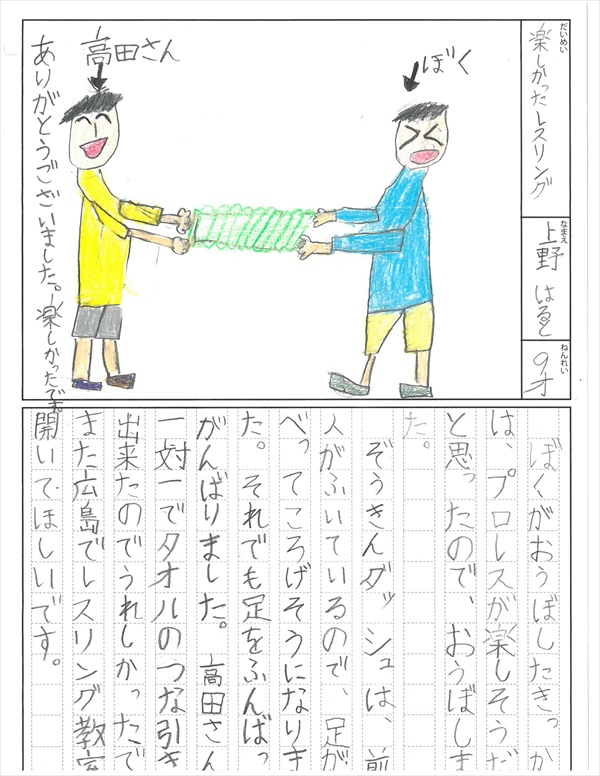 だいめい
楽しかったレスリング
なまえ
上野はると
ねんれい
9才
ぼく
高田さん
ありがとうございました。楽しかったです
ぼくがおうぼしたきっか
は、プロレスが楽しそうだ
と思ったので、おうぼしま
た。
ぞうきんダッシュは、前
人がふいているので、足が
べってころげそうになりま
た。それでも足をふんばっ
がんばりました。高田さん
一対一でタオルのつな引き
出来たのでうれしかったで
また広島でレスリング教室
開いてほしいです。